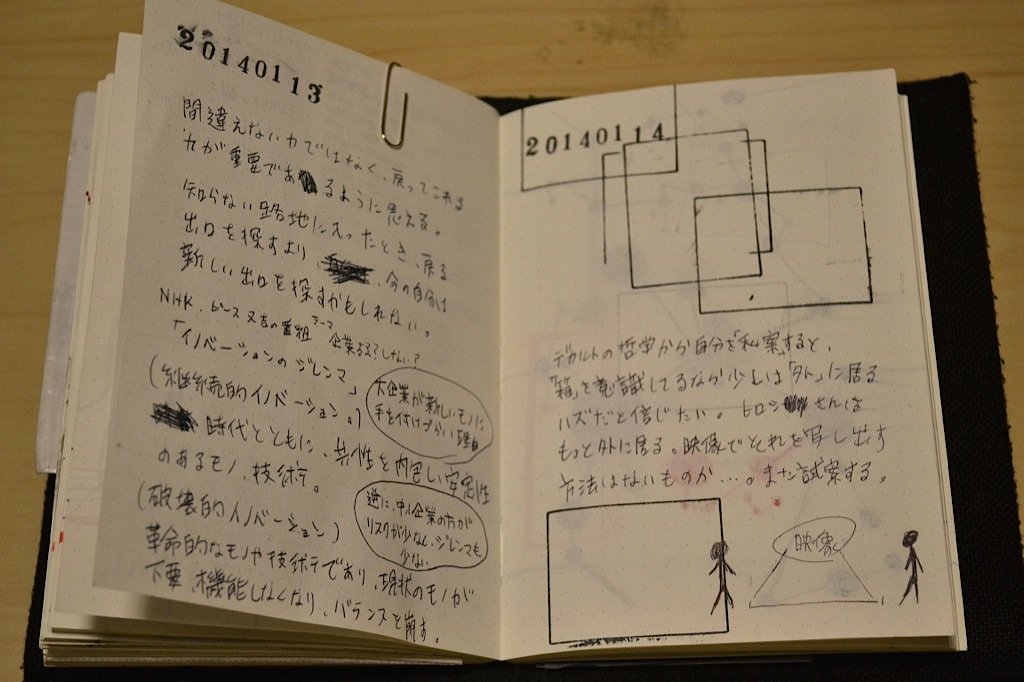 20140113
間違えない力ではなく、戻ってこれる
力が重要であるように思える。
知らない路地に入ったとき、戻る
出口を探すより、今の自分は
新しい出口を探すかもしれない。
NHK. ピース又吉の番組 テーマ 企業する?しない?
「イノベーションのジレンマ」
(継続的イノベーション。)
大企業が新しいモノに
手を付けづらい理由
時代とともに、共に性を内包し安定性
のあるモノ、技術等。
(破壊的イノベーション)
逆に、中小企業の方が
リスクが少なくジレンマも
少ない
革命的なモノや技術等であり、現状のモノが
下要、機能しなくなり、バランスを崩す。
20140114
デカルトの哲学から自分を「私案」すると、
「箱」を意識してるなら少しは「外」に居る
ハズだと信じたい。ヒロシさんは
もっと外に居る。映像でそれを写し出す
方法はないものか…。まだ試案する。
映像